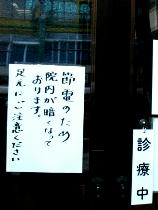 節電のため
院内が暗くなって
おります。
足元にご注意ください
診療中